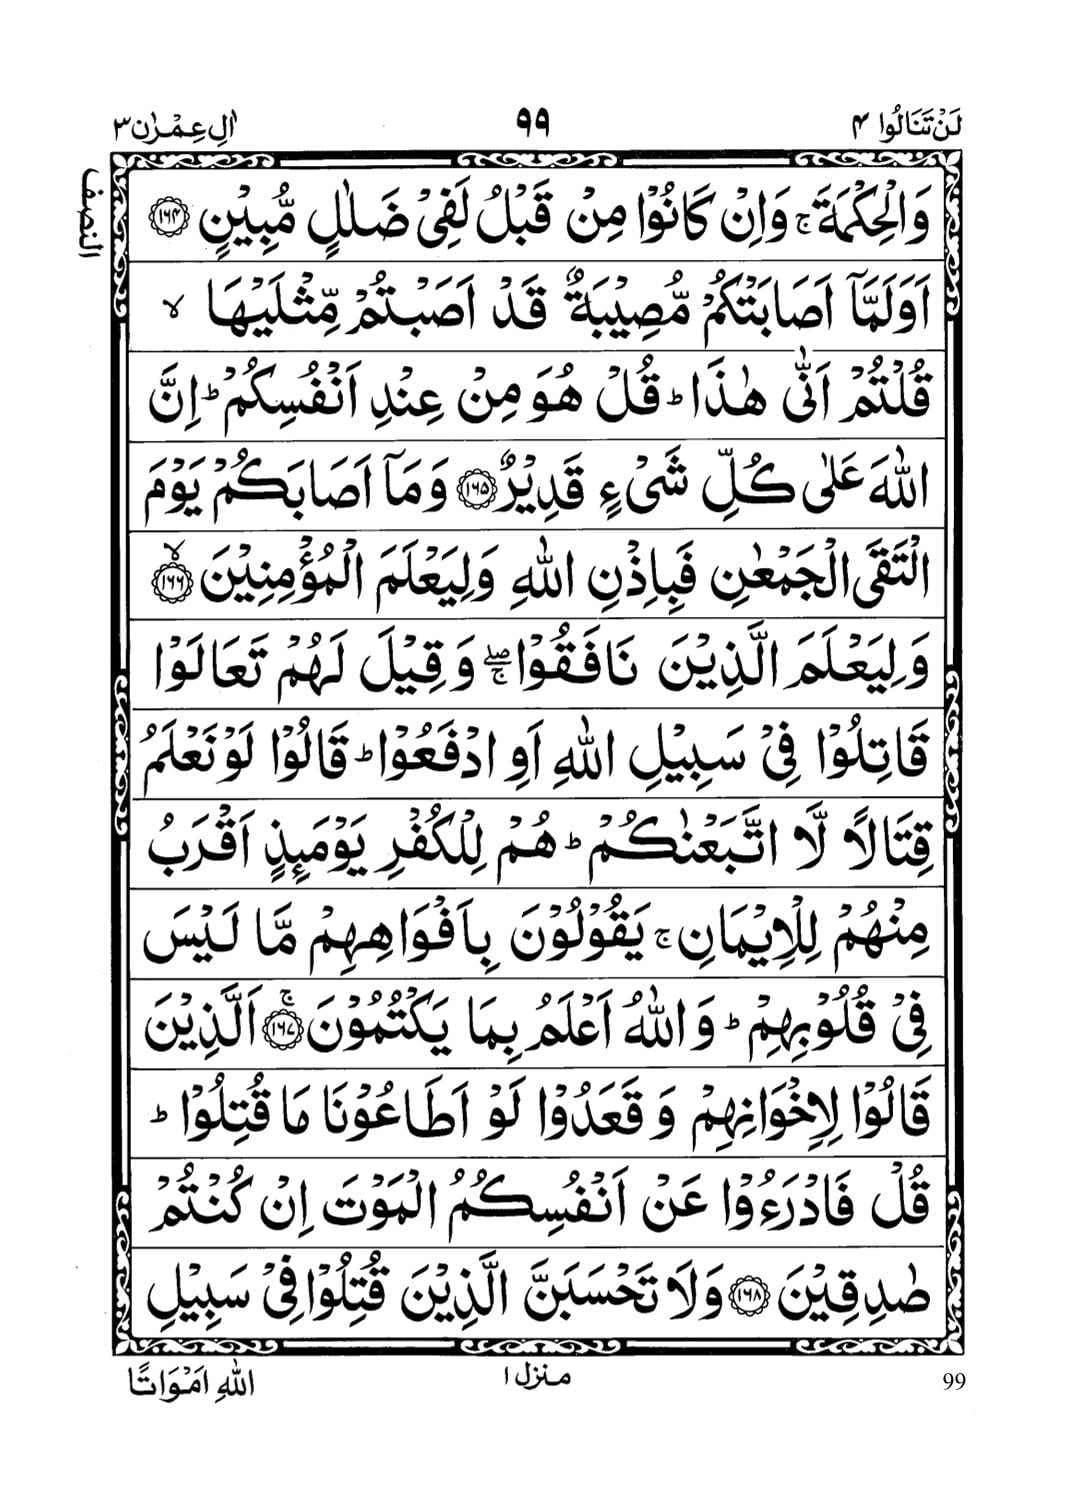 لَنْ تَنَالُوا ۴
۹۹
اٰلِ عِمْرٰن ۳
النصف
وَالْحِكْمَةَ ۚ وَاِنْ كَانُوْا مِنْ قَبْلُ لَفِیْ ضَلٰلٍ مُّبِیْنٍ ﴿۱۶۴﴾
اَوَلَمَّاۤ اَصَابَتْكُمْ مُّصِیْبَةٌ قَدْ اَصَبْتُمْ مِّثْلَیْهَا ۙ
قُلْتُمْ اَنّٰی هٰذَا ؕ قُلْ هُوَ مِنْ عِنْدِ اَنْفُسِكُمْ ؕ اِنَّ
اللّٰهَ عَلٰی كُلِّ شَیْءٍ قَدِیْرٌ ﴿۱۶۵﴾ وَمَاۤ اَصَابَكُمْ یَوْمَ
الْتَقَی الْجَمْعٰنِ فَبِاِذْنِ اللّٰهِ وَلِیَعْلَمَ الْمُؤْمِنِیْنَ ﴿۱۶۶﴾ۙ
وَلِیَعْلَمَ الَّذِیْنَ نَافَقُوْا ۖۚ وَقِیْلَ لَهُمْ تَعَالَوْا
قَاتِلُوْا فِیْ سَبِیْلِ اللّٰهِ اَوِ ادْفَعُوْا ؕ قَالُوْا لَوْ نَعْلَمُ
قِتَالًا لَّا اتَّبَعْنٰكُمْ ؕ هُمْ لِلْكُفْرِ یَوْمَئِذٍ اَقْرَبُ
مِنْهُمْ لِلْاِیْمَانِ ۚ یَقُوْلُوْنَ بِاَفْوَاهِهِمْ مَّا لَیْسَ
فِیْ قُلُوْبِهِمْ ؕ وَاللّٰهُ اَعْلَمُ بِمَا یَكْتُمُوْنَ ﴿۱۶۷﴾ۚ اَلَّذِیْنَ
قَالُوْا لِاِخْوَانِهِمْ وَقَعَدُوْا لَوْ اَطَاعُوْنَا مَا قُتِلُوْا ؕ
قُلْ فَادْرَءُوْا عَنْ اَنْفُسِكُمُ الْمَوْتَ اِنْ كُنْتُمْ
صٰدِقِیْنَ ﴿۱۶۸﴾ وَلَا تَحْسَبَنَّ الَّذِیْنَ قُتِلُوْا فِیْ سَبِیْلِ
اللّٰهِ اَمْوَاتًا
منزل ۱
99